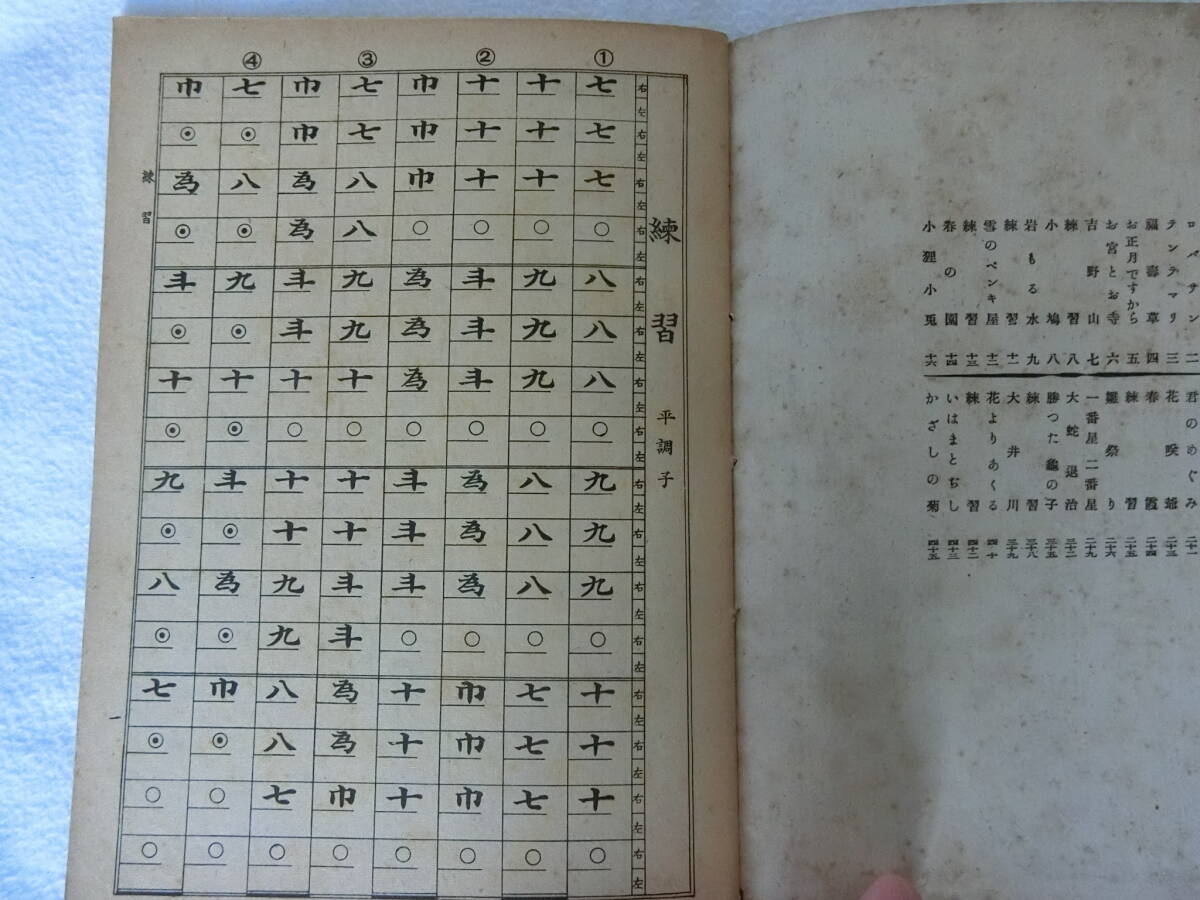 ロバサン 二
テンテマリ 三
福壽草 四
お正月ですから 五
お宮とお寺 六
吉野山 七
練習 八
小鳩 八
岩もる水 九
練習 十一
雪のペンキ屋 十二
練習 十三
春の園 十四
小狸小兎 十六
君のめぐみ 二十一
花咲爺 二十三
春霞 二十四
練習 二十五
雛祭り 二十六
一番星二番星 二十九
大蛇退治 三十二
勝つた龜の子 三十五
練習 三十八
大井川 三十九
花よりあくる 四十
練習 四十二
いはまとぢし 四十三
かざしの菊 四十五
練習 平調子
右左右左右左右左右左右左右左右左右左右左右左右左右左右左右左右左
① 七七七○八八八○九九九○十十十○
十十十○九九九○八八八○七七七○
② 十十十○斗斗斗○為為為○巾巾巾○
巾巾巾○為為為○斗斗斗○十十十○
③ 七七八八九九十○十十斗斗為為巾○
巾巾為為斗斗十○十十九九八八七○
④ 七◉八◉九◉十◉斗◉為◉巾◉○○
巾◉為◉斗◉十◉九◉八◉七◉○○
練習
一